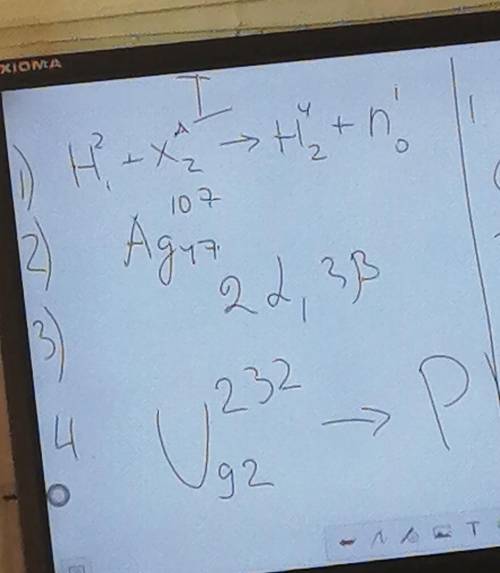 XIOMA
I
1) H²₁ + X^A_2 → H⁴₂ + n¹₀
2) Ag¹⁰⁷₄₇
3) 2α, 3β
4 U²³²₉₂ → P
T